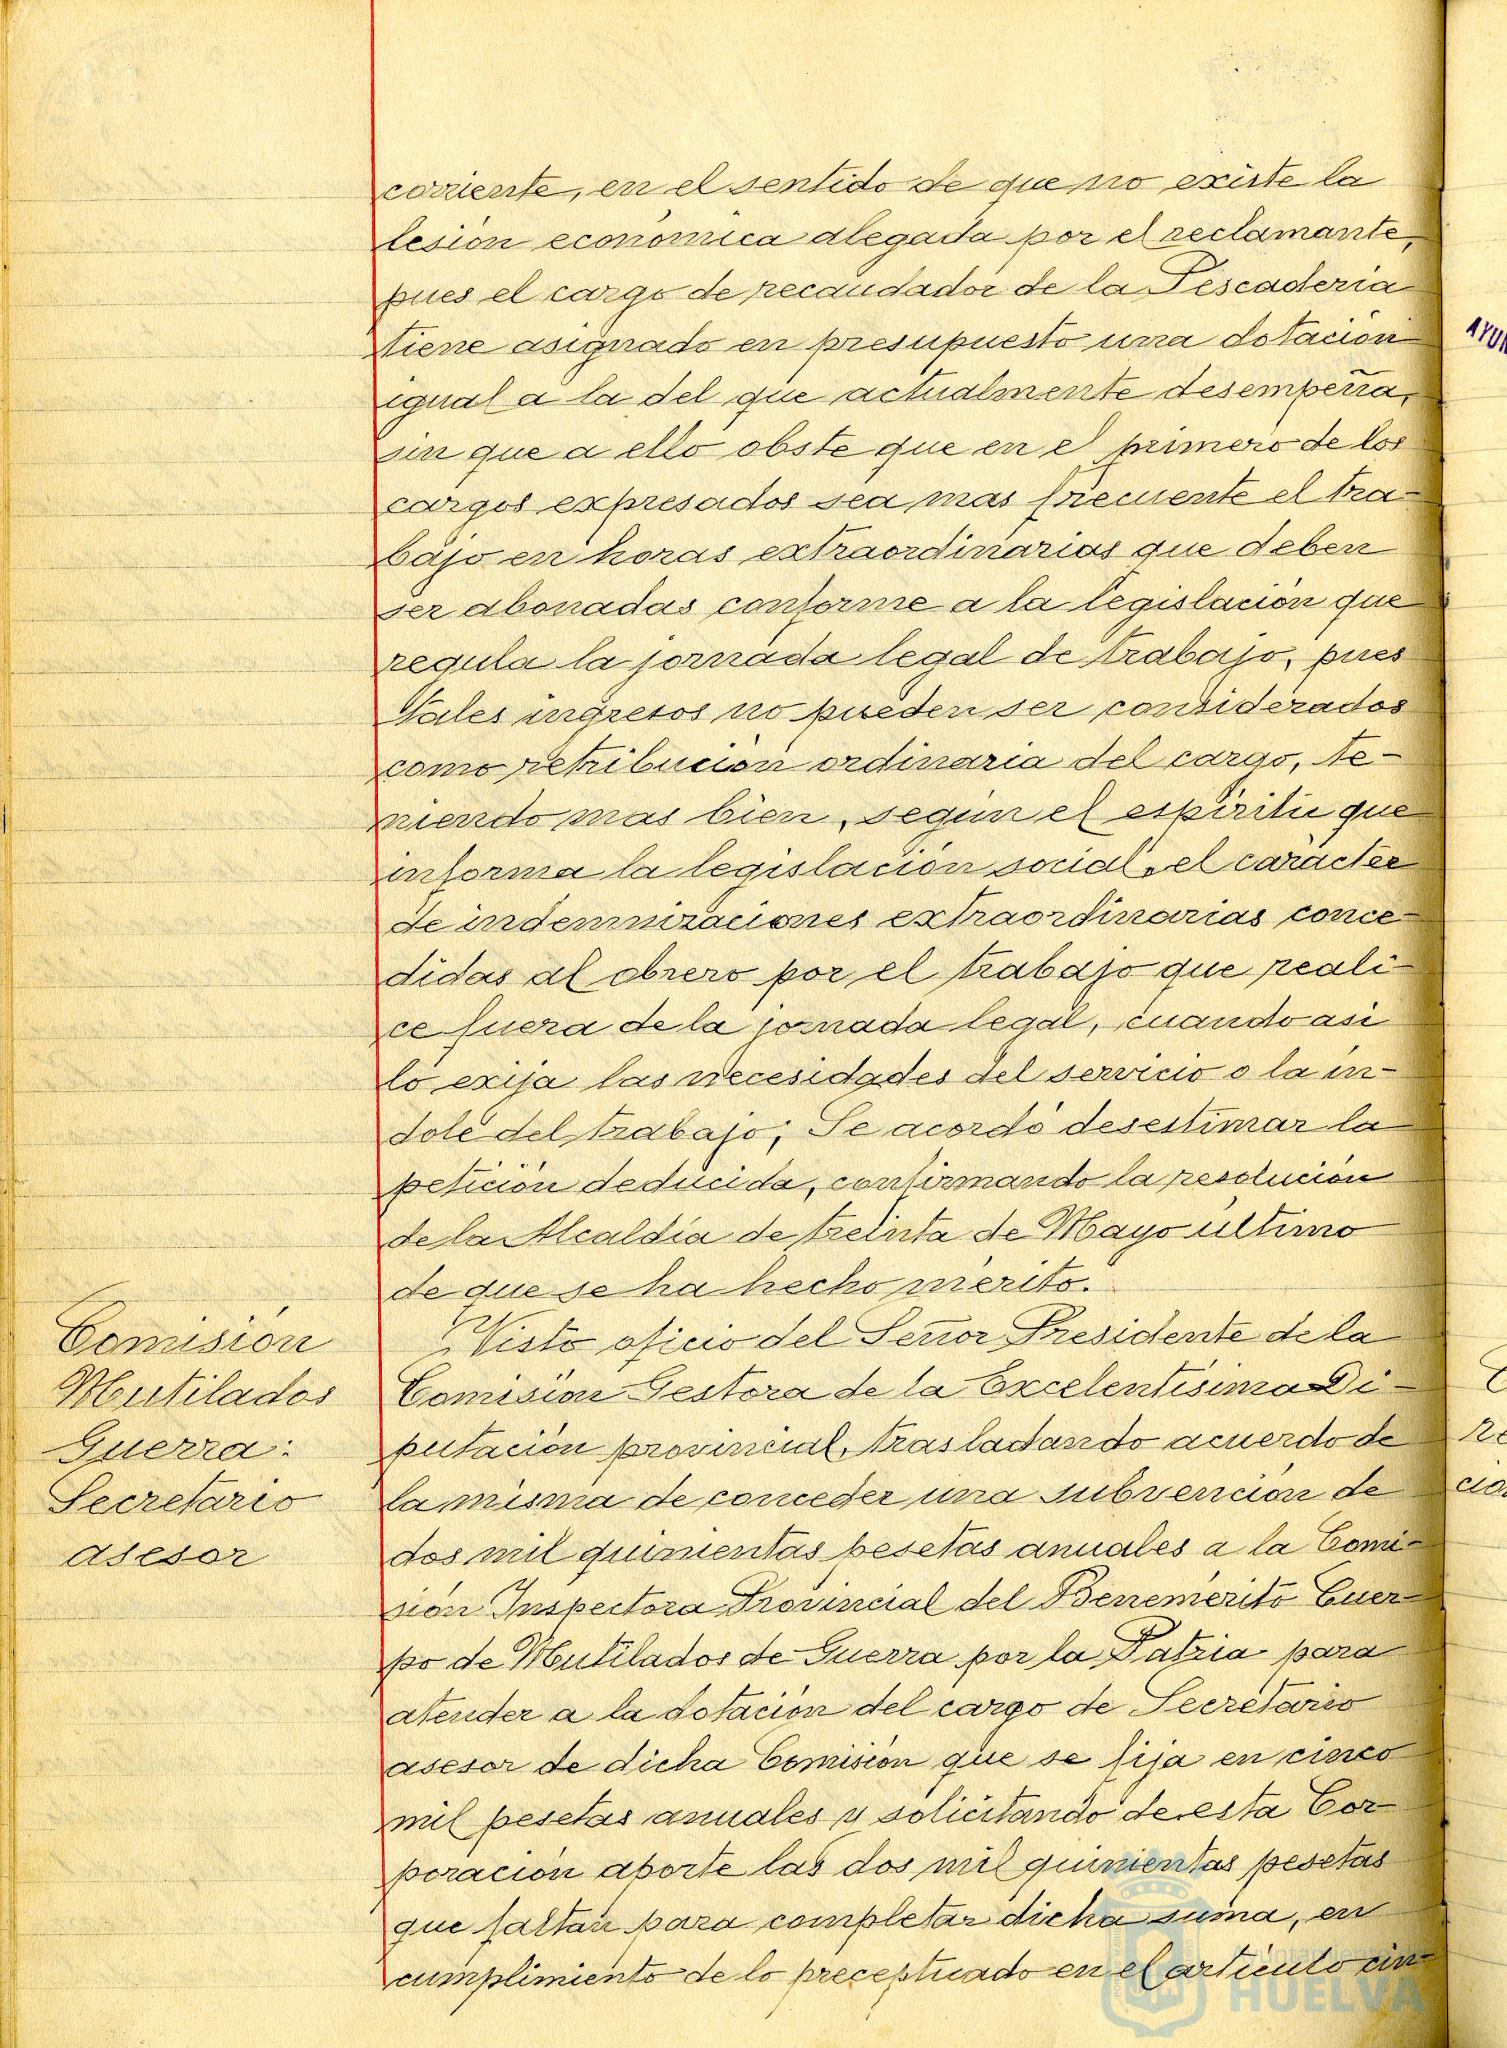 corriente, en el sentido de que no existe la
lesión económica alegada por el reclamante,
pues el cargo de recaudador de la Pescadería
tiene asignado en presupuesto una dotación
igual a la del que actualmente desempeña,
sin que a ello obste que en el primero de los
cargos expresados sea mas frecuente el tra-
bajo en horas extraordinarias que deben
ser abonadas conforme a la legislación que
regula la jornada legal de trabajo, pues
tales ingresos no pueden ser considerados
como retribución ordinaria del cargo, te-
niendo mas bien, según el espíritu que
informa la legislación social, el carácter
de indemnizaciones extraordinarias conce-
didas al obrero por el trabajo que reali-
ce fuera de la jornada legal, cuando asi
lo exija las necesidades del servicio o la ín-
dole del trabajo; Se acordó desestimar la
petición deducida, confirmando la resolución
de la Alcaldía de treinta de Mayo último
de que se ha hecho mérito.
Comisión
Mutilados
Guerra:
Secretario
asesor
Visto oficio del Señor Presidente de la
Comisión Gestora de la Excelentísima Di-
putación provincial, trasladando acuerdo de
la misma de conceder una subvención de
dos mil quinientas pesetas anuales a la Comi-
sión Inspectora Provincial del Benemérito Cuer-
po de Mutilados de Guerra por la Patria para
atender a la dotación del cargo de Secretario
asesor de dicha Comisión que se fija en cinco
mil pesetas anuales y solicitando de esta Cor
poración aporte las dos mil quinientas pesetas
que faltan para completar dicha suma, en
cumplimiento de lo preceptuado en el artículo cin-
Ayuntamiento de
HUELVA
AYUN